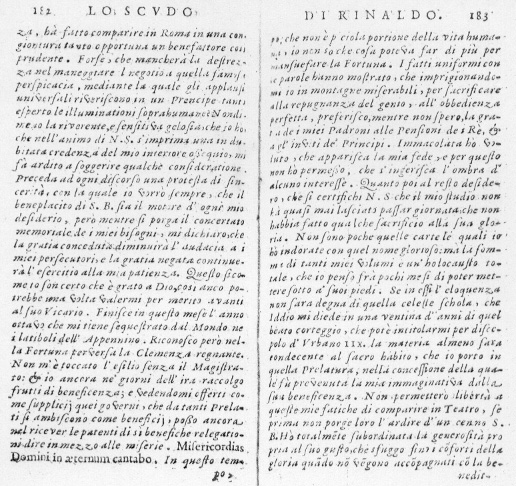 182 LO SCVDO
za, hà fatto comparire in Roma in una con-
giontura tanto opportuna un benefattore così
prudente. Forse, che mancherà la destrez-
za nel maneggiare l negotio a quella famosa
perspicacia, mediante la quale gli applausi
universali riveriscono in un Prencipe tanto
esperto le illuminationi soprahumane? Nondi-
meno la riverente, e sensitiva gelosia, che io ho,
che nell'animo di N.S. s'imprima una in du-
bitata credenza del mio interiore ossequio, mi
fà ardito a soggerire qualche consideratione.
Preceda ad ogni discorso una protesta di sin-
cerità, con la quale io vorrò sempre, che il
beneplacito di S.B. sia il motore d'ogni mio
desiderio, però mentre si porga il concertato
memoriale de i miei bisogni, mi dichiaro, che
la gratia conceduta diminuirà l'audacia a i
miei persecutori, e la gratia negata continue-
rà l'esercitio alla mia patienza. Questo sico-
me to son certo che è grato a Dio, così anco po-
trebbe una volta valermi per merito avanti
al suo Vicario. Finisce in questo mese l'anno
ottavo che mi tiene sequestrato dal Mondo ne
i latiboli dell' Appennino. Riconosco però nel-
la Fortuna perversa la Clemenza regnante.
Non m'è toccato l'esilio senza il Magistra-
to: & io ancora ne' giorni dell' ira raccolgo
frutti di beneficenza; e vedendomi offerti co-
me supplicij quei governi, che da tanti Prela-
ti s'ambiscono come beneficij, posso ancora
nel ricever le patenti di sì benefiche relegatio-
ni dire in mezzo alle miserie. Misericordias
Domini in æternum cantabo. In questo tem-
po,
DI RINALDO. 183
po, che non è picciola portione della vita huma-
na, io non so che cosa poteva far di più per
mansuefare la Fortuna. I fatti uniformi con
le parole hanno mostrato, che imprigionando-
mi to in montagne miserabili, per sacrificare
alla repugnanza del genio, all' obbedienza
perfetta, preferisco, mentre non spero, la gra-
tia de i miei Padroni alle Pensioni de i Rè, &
agl' inviti de' Principi. Immacolata hò vo-
luto, che apparisca la mia fede, e per questo
non hò permesso, che s'ingerisca l'ombra d'
alcuno interesse. Quanto poi al resto deside-
ro, che si certifichi N.S che il mio studio non
hà quasi mai lasciato passar giornata, che non
habbia fatto qualche sacrificio alla sua glo-
ria. Non sono poche quelle carte le quali io
hò indorato con quel nome glorioso: ma la som-
ma di tanti miei volumi è un' holocausto to-
tale, che io penso frà pochi mesi di poter met-
tere sotto a' suoi piedi. Se in essi l'eloquenza
non sarà degna di quella celeste schola, che
Iddio mi diede in una ventina d'anni di quel
beato corteggio, che potè intitolarmi per disce-
polo d'Vrbano IIX. la materia almeno sarà
condecente al sacro habito, che io porto in
quella Prelatura, nella concessione della qua-
le fù prevenuta la mia immaginativa dalla
sua beneficenza. Non permetterò libertà a
queste mie fatiche di comparire in Teatro, se
prima non porge loro l'ardire d'un cenno S.
B. Hò totalmẽte subordinata la generosità pro
pria al suo gusto, che sfuggo sin i cõforsi della
gloria quãdo nõ vẽgono accõpagnati cõ la be-
nedit-